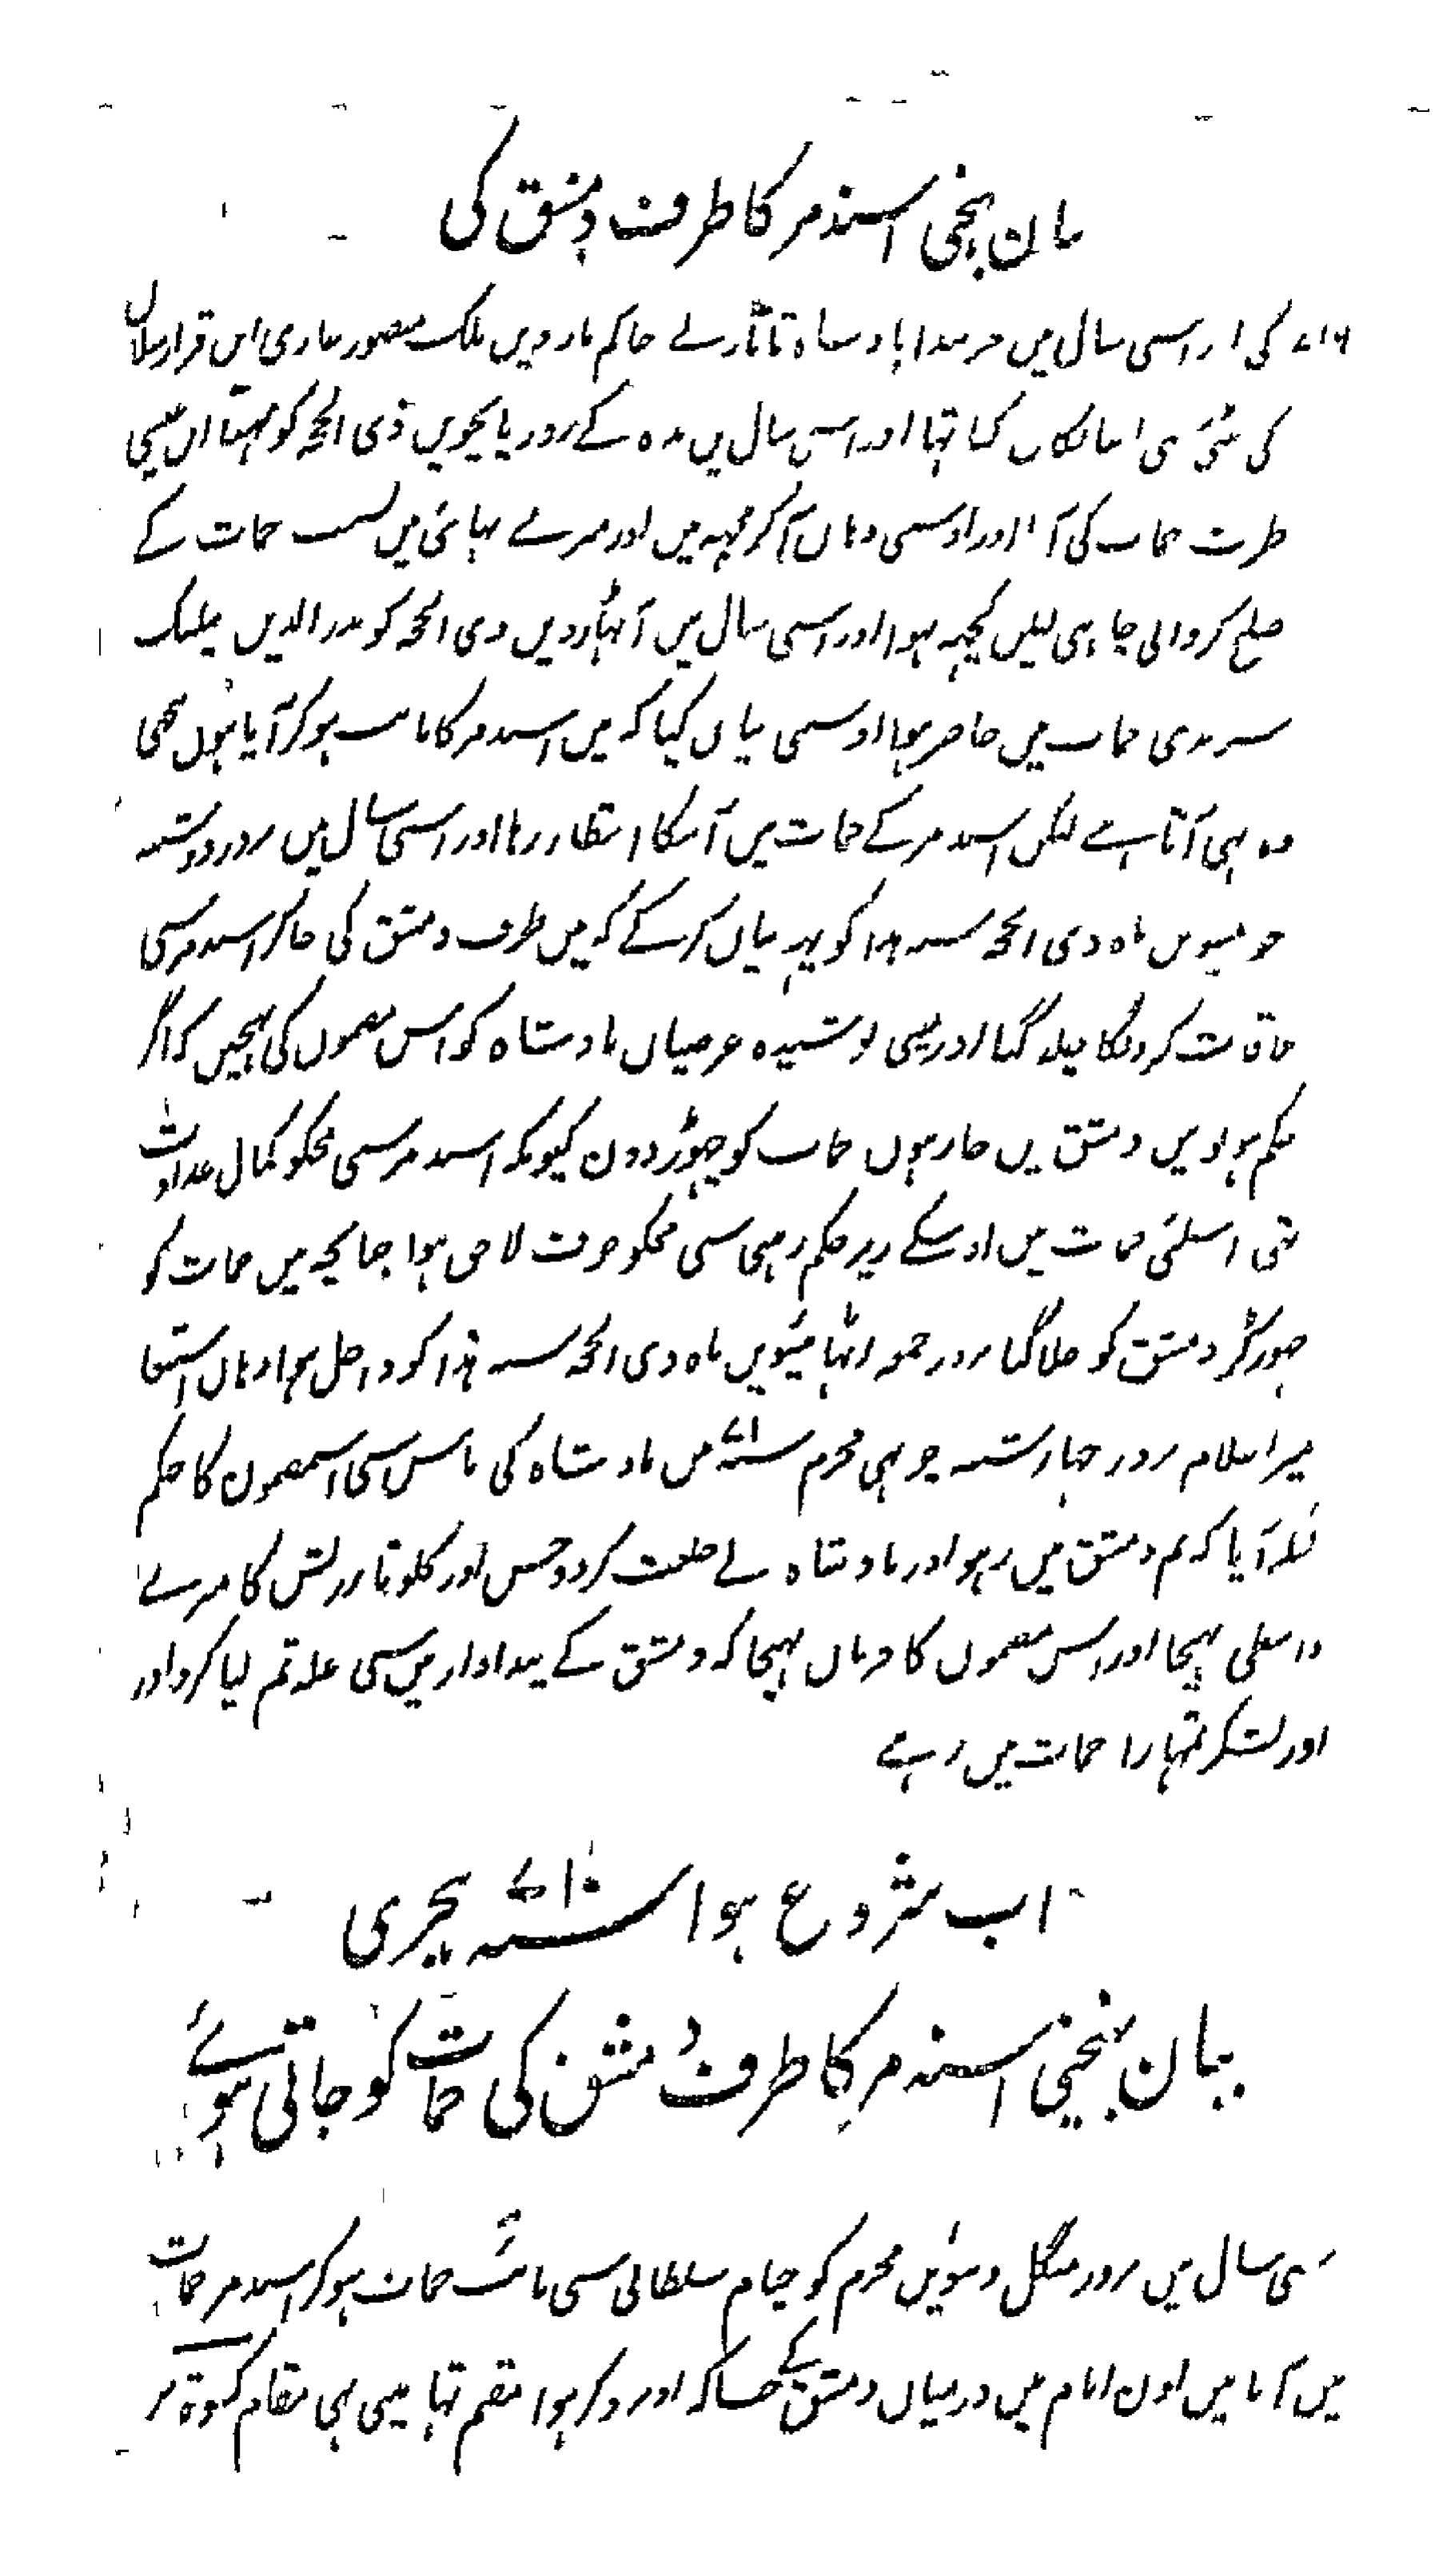 بیان پہنچنی اسندمر کا طرف دمشق کی
کی اور اسی سال میں خربندا بادشاہ تاتار نے حاکم ماردین ملک منصور غازی ابن قرا ارسلان
کی بیٹی سی اپنا نکاح کیا تہا اور اسی سال میں بدہ کے روز پانچویں ذی الحجہ کو مہنا ابن عیسی
طرف حمات کی آیا اور اوسسی وہاں آکر مجہہ میں اور میرے بہائی میں بسبب حمات کے
صلح کروانی چاہی لیکن کچہہ نہوا اور اسی سال میں آٹہارویں ذی الحجہ کو بدر الدین
حمات میں حاضر ہوا اوسسی بیان کیا کہ میں اسندمر کا نائب ہوکر آیا ہوں
وہ بہی آتا ہے لیکن اسندمر کے حمات میں آنیکا انتظار رہا اور اسی سال میں روز دوشنبہ
چوبیسویں ماہ ذی الحجہ سنہ ہذا کو یہہ بیان کرکے کہ میں طرف دمشق کی جاکر اسندمر سی
ملاقات کرونگا چلا گیا اور مینی پوشیدہ عرضیاں بادشاہ کو اس مضمون کی بہیجیں کہ اگر
حکم ہو تو میں دمشق میں جا رہوں حمات کو چہوڑ دون کیونکہ اسندمر سی مجکو کمال عداوت
تہی اسلئی حمات میں اوسکے زیر حکم رہنی سی مجکو خوف لاحق ہوا چنانچہ میں حمات کو
چہوڑکر دمشق کو چلا گیا روز جمعہ اٹہائیسویں ماہ ذی الحجہ سنہ ہذا کو داخل ہوا وہاں
میرا غلام روز چہارشنبہ چوتہی محرم سنہ میں بادشاہ کی پاس سی اسمضمون کا حکم
لیکر آیا کہ تم دمشق میں رہو اور بادشاہ نے خلعت کا میرے
واسطی بہیجا اور اس مضمون کا فرمان بہیجا کہ دمشق کے پیداوار میں سی غلہ تم لیا کرو اور
اور لشکر تمہارا حمات میں رہے
اب شروع ہوا سنہ ۷۱۰ ہجری
بیان پہنچنی اسندمر کا طرف دمشق کی حمات کو جاتی ہوئے
اسی سال میں روز منگل دسویں محرم کو خیام سلطانی سی نائب حمات ہوکر اسندمر حمات
میں آیا میں اون ایام میں درمیاں دمشق کے جیسا کہ اوپر ذکر ہوا مقیم تہا مینی بہی مقام کسوۃ پر